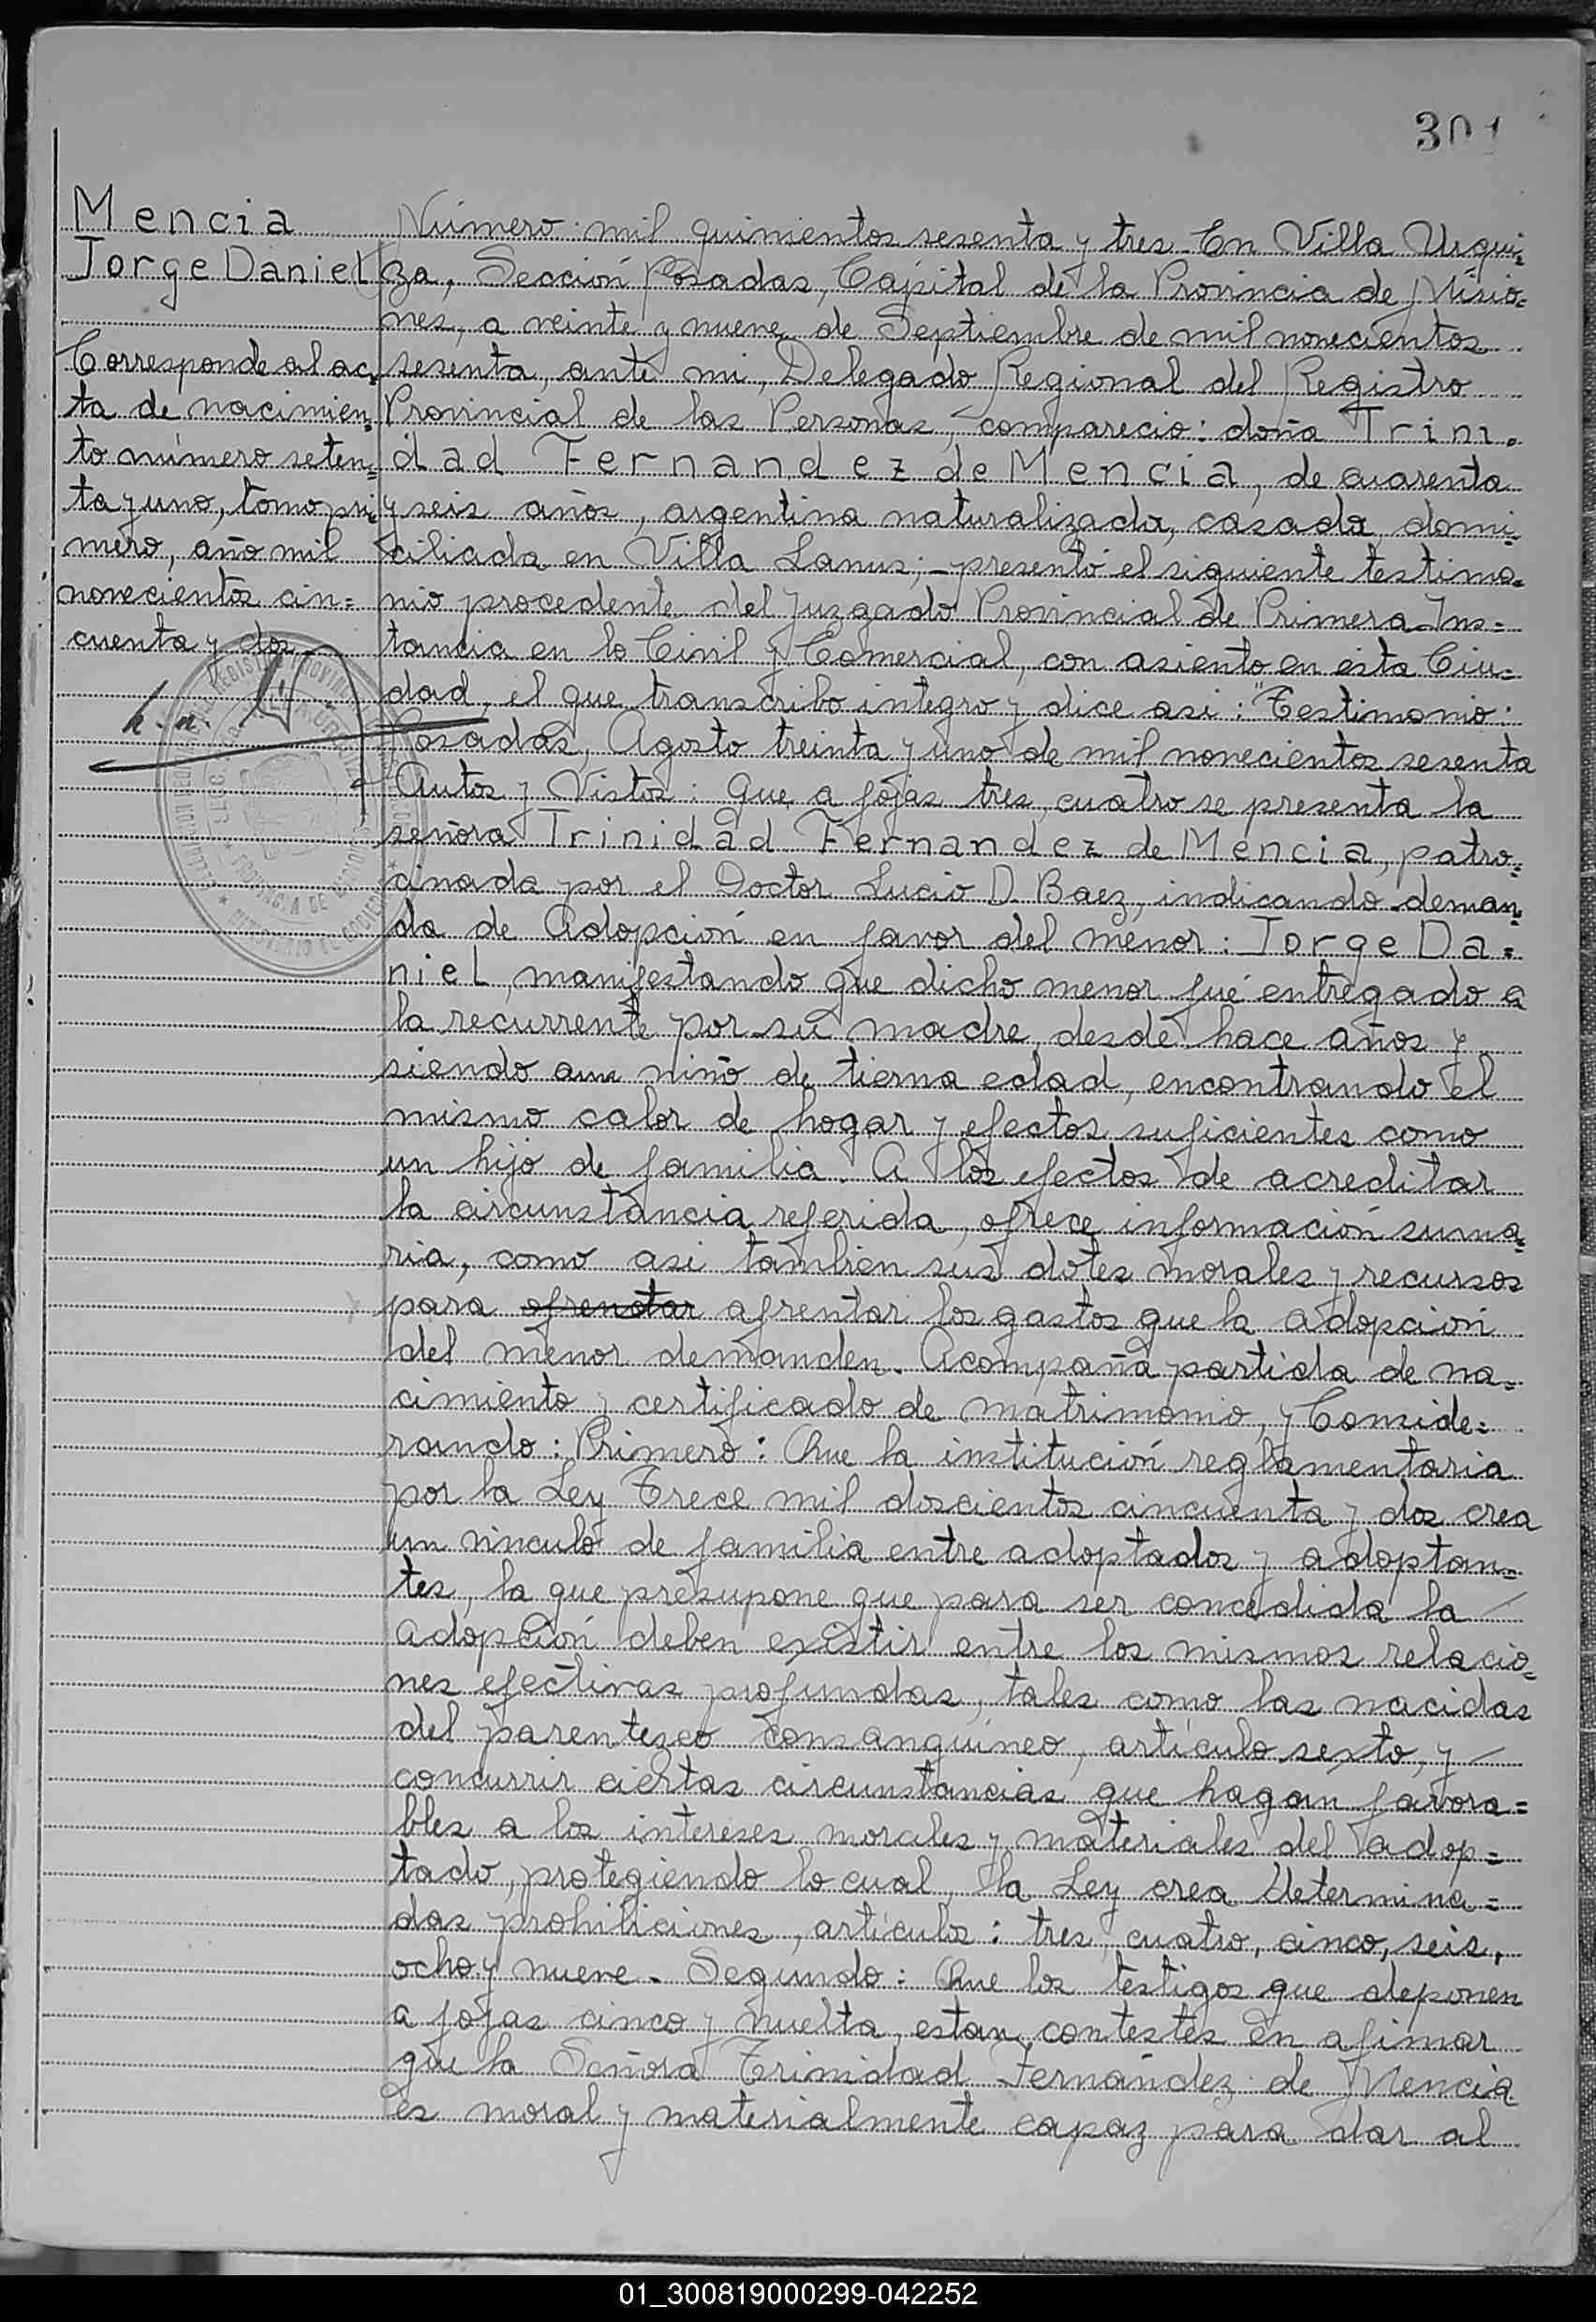 301
Mencia
Jorge Daniel
Corresponde al ac=
ta de nacimien=
to número seten=
ta y uno, tomo pri=
mero, año mil
novecientos cin=
cuenta y dos
h. n.
Número: mil quinientos sesenta y tres. En Villa Urqui=
za, Sección Posadas, Capital de la Provincia de Misio=
nes, a veinte y nueve de Septiembre de mil novecientos
sesenta, ante mi, Delegado Regional del Registro
Provincial de las Personas, compareció: doña Trini=
dad Fernandez de Mencia, de cuarenta
y seis años, argentina naturalizada, casada, domi=
ciliada en Villa Lanus; presentó el siguiente testimo=
nio procedente del Juzgado Provincial de Primera Ins=
tancia en lo Civil y Comercial, con asiento en esta Ciu=
dad, el que transcribo integro y dice asi: "Testimonio:
Posadas, Agosto treinta y uno de mil novecientos sesenta
Autos y Vistos: Que a fojas tres, cuatro se presenta la
señora Trinidad Fernandez de Mencia, patro=
cinada por el Doctor Lucio D. Baez, indicando deman=
da de Adopción en favor del menor: Jorge Da=
niel, manifestando que dicho menor fué entregado a
la recurrente por su madre, desde hace años y
siendo aun niño de tierna edad, encontrando el
mismo calor de hogar y efectos suficientes como
un hijo de familia. A los efectos de acreditar
la circunstancia referida, ofrece información suma=
ria, como asi tambien sus dotes morales y recursos
para ofrenotar afrentar los gastos que la adopción
del menor demanden. Acompaña partida de na=
cimiento y certificado de matrimonio, y Conside=
rando: Primero: Que la institución reglamentaria
por la Ley Trece mil doscientos cincuenta y dos crea
un vinculo de familia entre adoptados y adoptan=
tes, la que presupone que para ser concedida la
adopción deben existir entre los mismos relacio=
nes efectivas profundas, tales como las nacidas
del parentesco consanguíneo, artículo sexto, y
concurrir ciertas circunstancias que hagan favora=
bles a los intereses morales y materiales del adop=
tado, protegiendo lo cual, la Ley crea determina=
das prohibiciones, artículos: tres, cuatro, cinco, seis,
ocho y nueve. Segundo: Que los testigos que deponen
a fojas cinco y vuelta, estan contestes en afimar
que la Señora Trinidad Fernández de Mencia
es moral y materialmente capaz para dar al
01_300819000299-042252